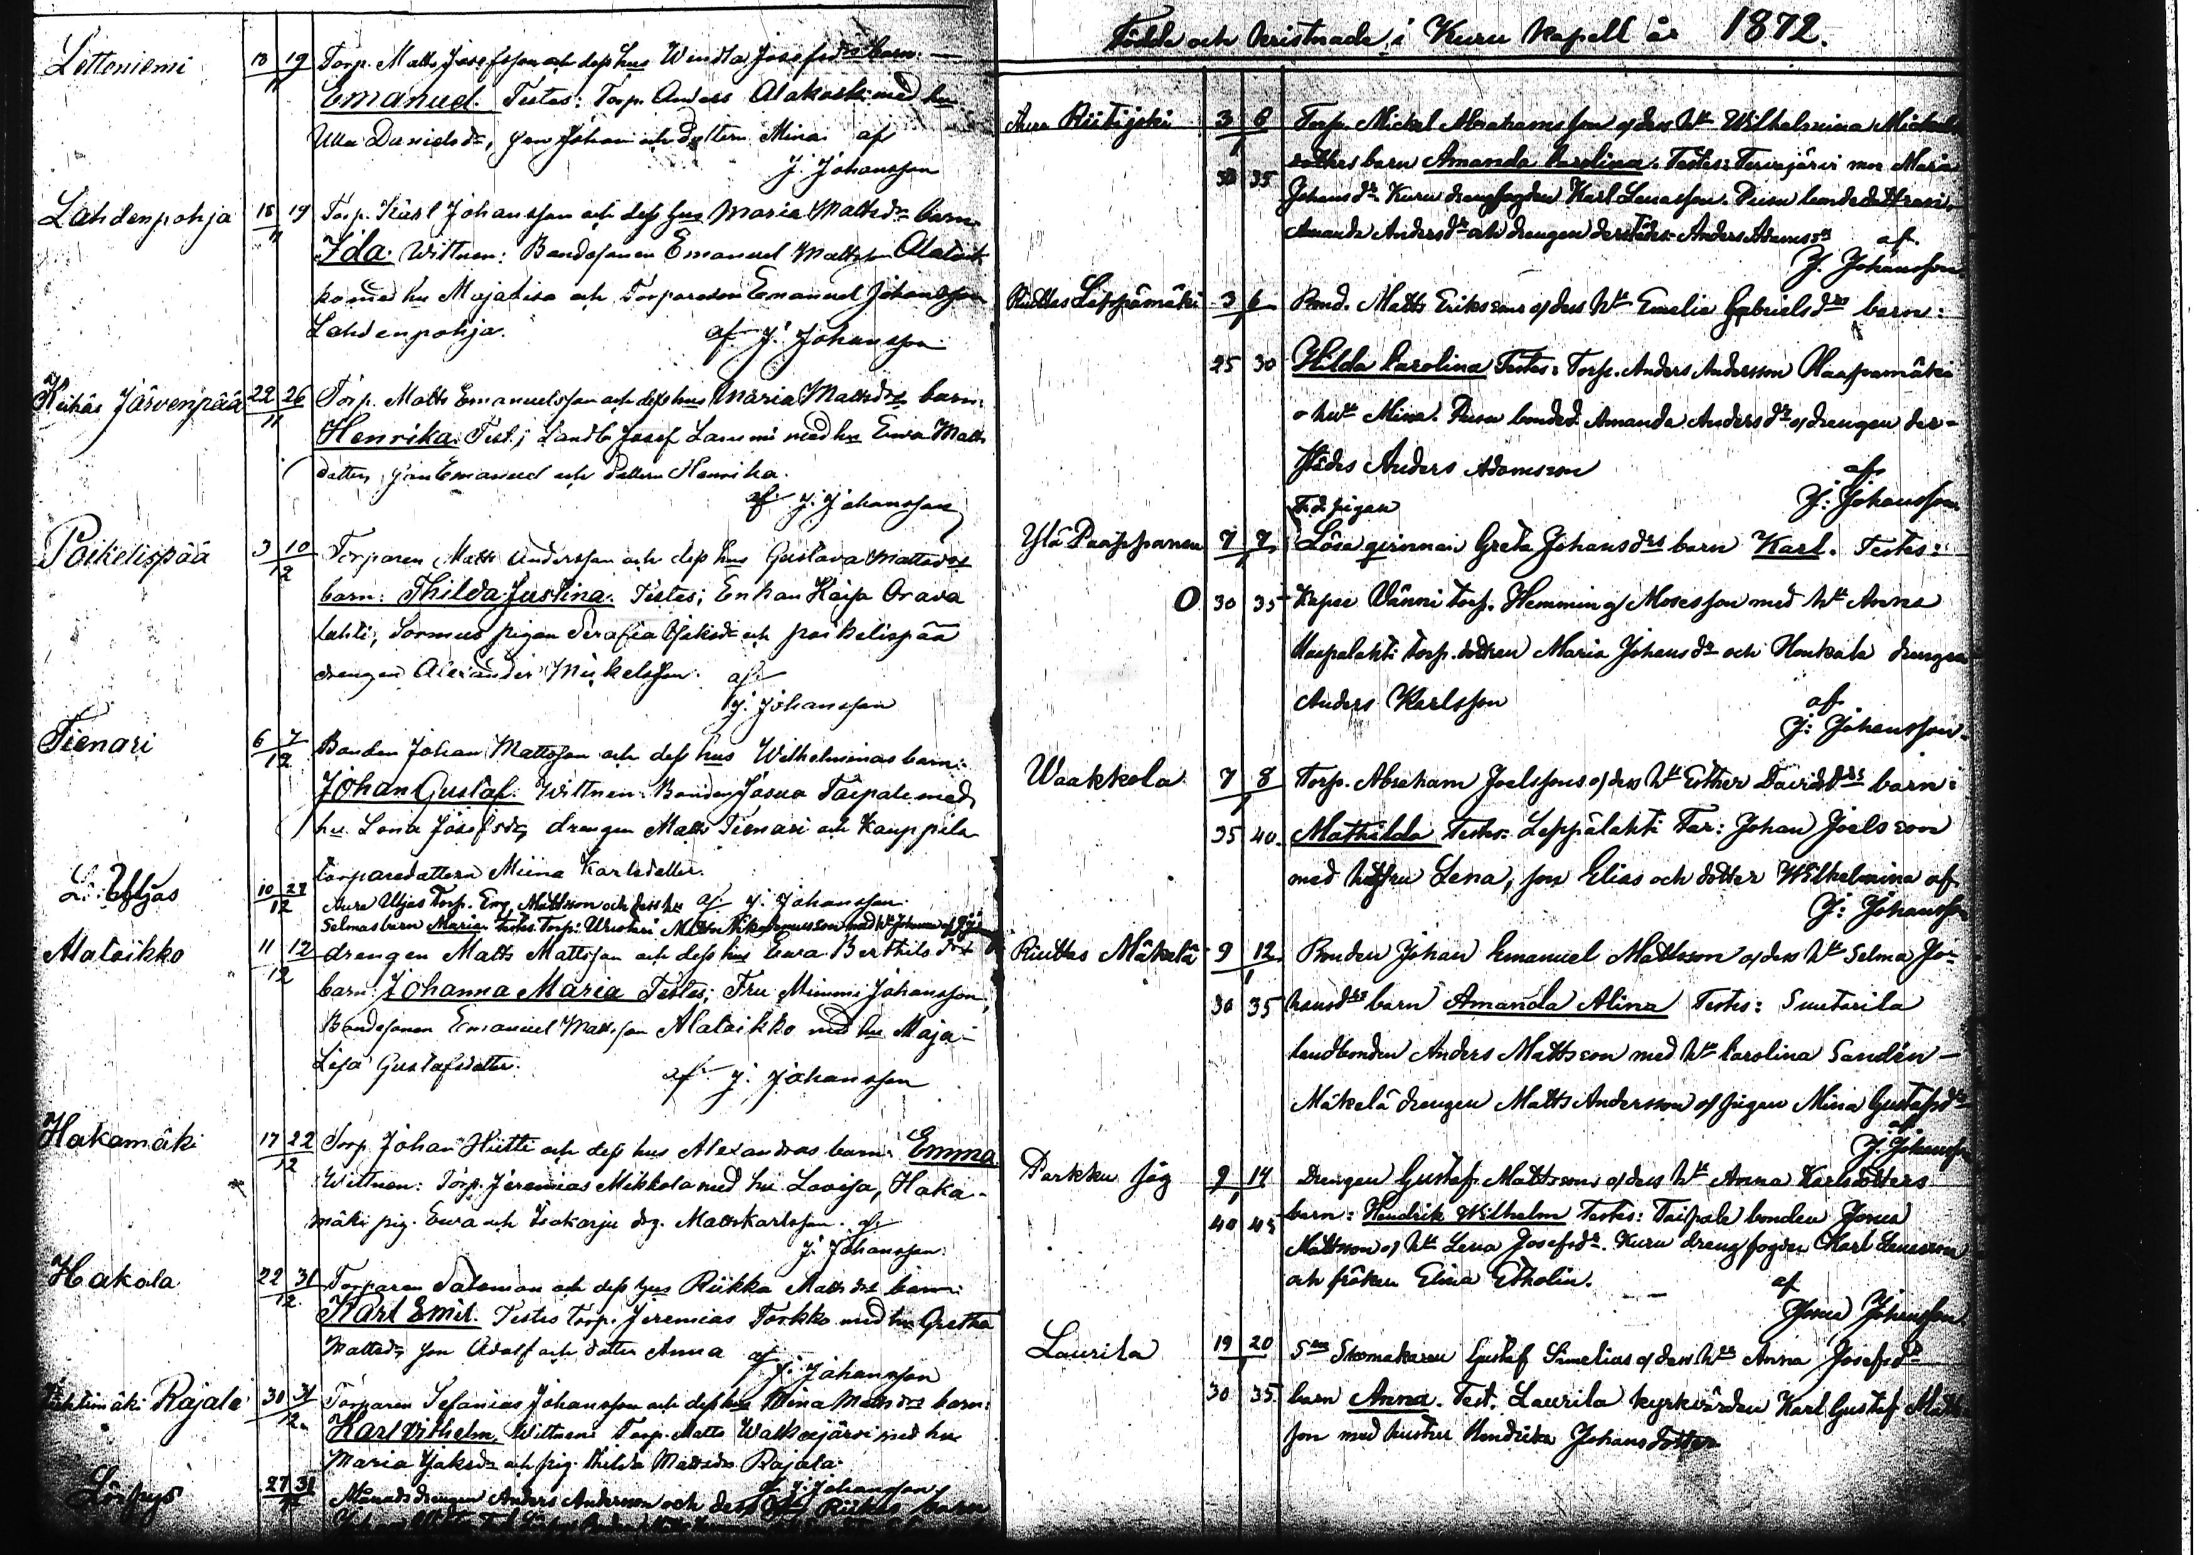 Lettoniemi 18 19 Torp. Matts Josefsson och dess hus Wendla Josefsdrs barn.
11
Emanuel. Testes: Torp. Anders Alakoski med hu
Ulla Danielsdr, son Johan och dottern Mina. af
J. Johansson
Lahdenpohja 18 19 Torp. Karl Johansson och dess hus Maria Mattsdrs barn
11
Ida. Wittnen: Bondesonen Emanuel Mattsson Alatoik-
ko med hu Majalisa och Torpareson Emanuel Johansson
Lahdenpohja. af J. Johansson
Keihäs Järvenpää 22 26 Torp. Matts Emanuelsson och dess hus Maria Mattsdrs barn:
11
Henrika. Test.; Landb. Josef Lammi med hu Ewa Matts
dotter, son Emanuel och dottern Henrika.
af J. Johansson
Poikelispää 3 10 Torparen Matts Andersson och dess hus Gustava Mattsdrs
12
barn: Thilda Justina. Testes; Enkan Kaisa Orava
lahti, Sormus pigan Serafia Isaksdr och Poikelispää
drengen Alexander Mickelsson. af
J. Johansson
Tienari 6 7 Bonden Johan Mattsson och dess hus Wilhelminas barn:
12
Johan Gustaf. Wittnen: Bonden Josua Taipale med
hu. Lena Josefsdr, drengen Matts Tienari och Kauppila
torparedottern Miina Karlsdotter.
af J. Johansson
L. Uljas 10 29 Aure Uljas Torp. Eng. Mattsson och dess hu
12
Selmas barn Maria. Testes Torp:
Alatoikko 11 12 drengen Matts Mattsson och dess hus Ewa Berthilsdrs
12
barn: Johanna Maria Testes; Fru Mimmi Johansson,
Bondesonen Emanuel Mattsson Alatoikko med hu Maja-
Lisa Gustafsdotter. af J. Johansson
Hakamäki 17 22 Torp. Johan Hütti och dess hus Alexandras barn: Emma
12
Wittnen: Torp. Jeremias Mikkola med hu Lovisa, Haka-
mäki pig. Ewa och Isakarju drg. Matts Karlsson. af
J. Johansson
Hakala 22 31 Torparen Salomon och dess hus Riikka Mattsdrs barn:
12
Karl Emil. Testes Torp. Jeremias Torkko med hu Gretha
Mattsdr, son Adolf och dotter Anna af
J. Johansson
Rajala 30 31 Torparen Sefanias Johansson och dess hus Mina Mattsdrs barn:
12
Karl Vilhelm Wittnen: Torp. Matts Walkejärvi med hu
Maria Isaksdr och pig. Thilda Mattsdr Rajala.
af J. Johansson
27 31 Månadsdrengen Anders Andersson och dess hu Riikas barn
Födde och kristnade i Kuru Kapell år 1872.
Aure Riitijoki 3 6 Torp. Mickel Abrahamsson o/ dess hu Wilhelmina Mickels
1
dotters barn Amanda Karolina. Testes: Tervajärvi mor Maria
30 35
Johansdr. Kuru drengfogden Karl Lenasson.
Amanda Andersdr och drengen derstädes Anders Adamsson af
J. Johansson
Riuttas Leppämäki 3 6 Bond. Matts Erikssons o/ dess hu Emelia Gabrielsdrs barn:
1
25 30 Hilda Karolina Testes: Torp. Anders Andersson Haapamäki
o hu Mina. bonded. Amanda Andersdr o/ drengen der-
städes Anders Adamsson af
J: Johansson
F.d. pigan
Ylä Paappanen 7 7 Lösa qvinnan Greta Johansdrs barn Karl. Testes:
1
O 30 35 Kapee Vänni torp. Hemming Mosesson med hu Anna
Haapalahti torp. dottren Maria Johansdr och Honkala drengen
Anders Karlsson af
J: Johansson
Waakkola 7 8 Torp. Abraham Joelssons o/ dess hu Esther Davidsdrs barn:
1
35 40 Mathilda Testes: Leppälahti Tor: Johan Joelsson
med hustru Lena, son Elias och dotter Wilhelmina af
J: Johansson
Riuttas Mäkelä 9 12 Bonden Johan Emanuel Mattsson o/ dess hu Selma Jo-
1
30 35 hansdrs barn Amanda Alina Testes: Suutarila
landbonden Anders Mattsson med hu Karolina Sandén-
Mäkelä drengen Matts Andersson o/ pigan Mina Gustafsdr
af
J. Johansson
Parkku säg 9 14 Drengen Gustaf Mattssons o/ dess hu Anna Karlsdotters
1
40 45 barn: Hendrik Wilhelm Testes: Taipale bonden Josua
Mattsson o/ hu Lena Josefsdr. Kuru drengfogden Karl Lenasson
och fröken Elina Etholén. af
Josua Johansson
Laurila 19 20 Skomakaren Gustaf Simelius o/ dess hus Anna Josefsdr
1
30 35 barn Anna. Test. Laurila kyrkvärden Karl Gustaf Matts
son med hustru Hendrika Johansdotter